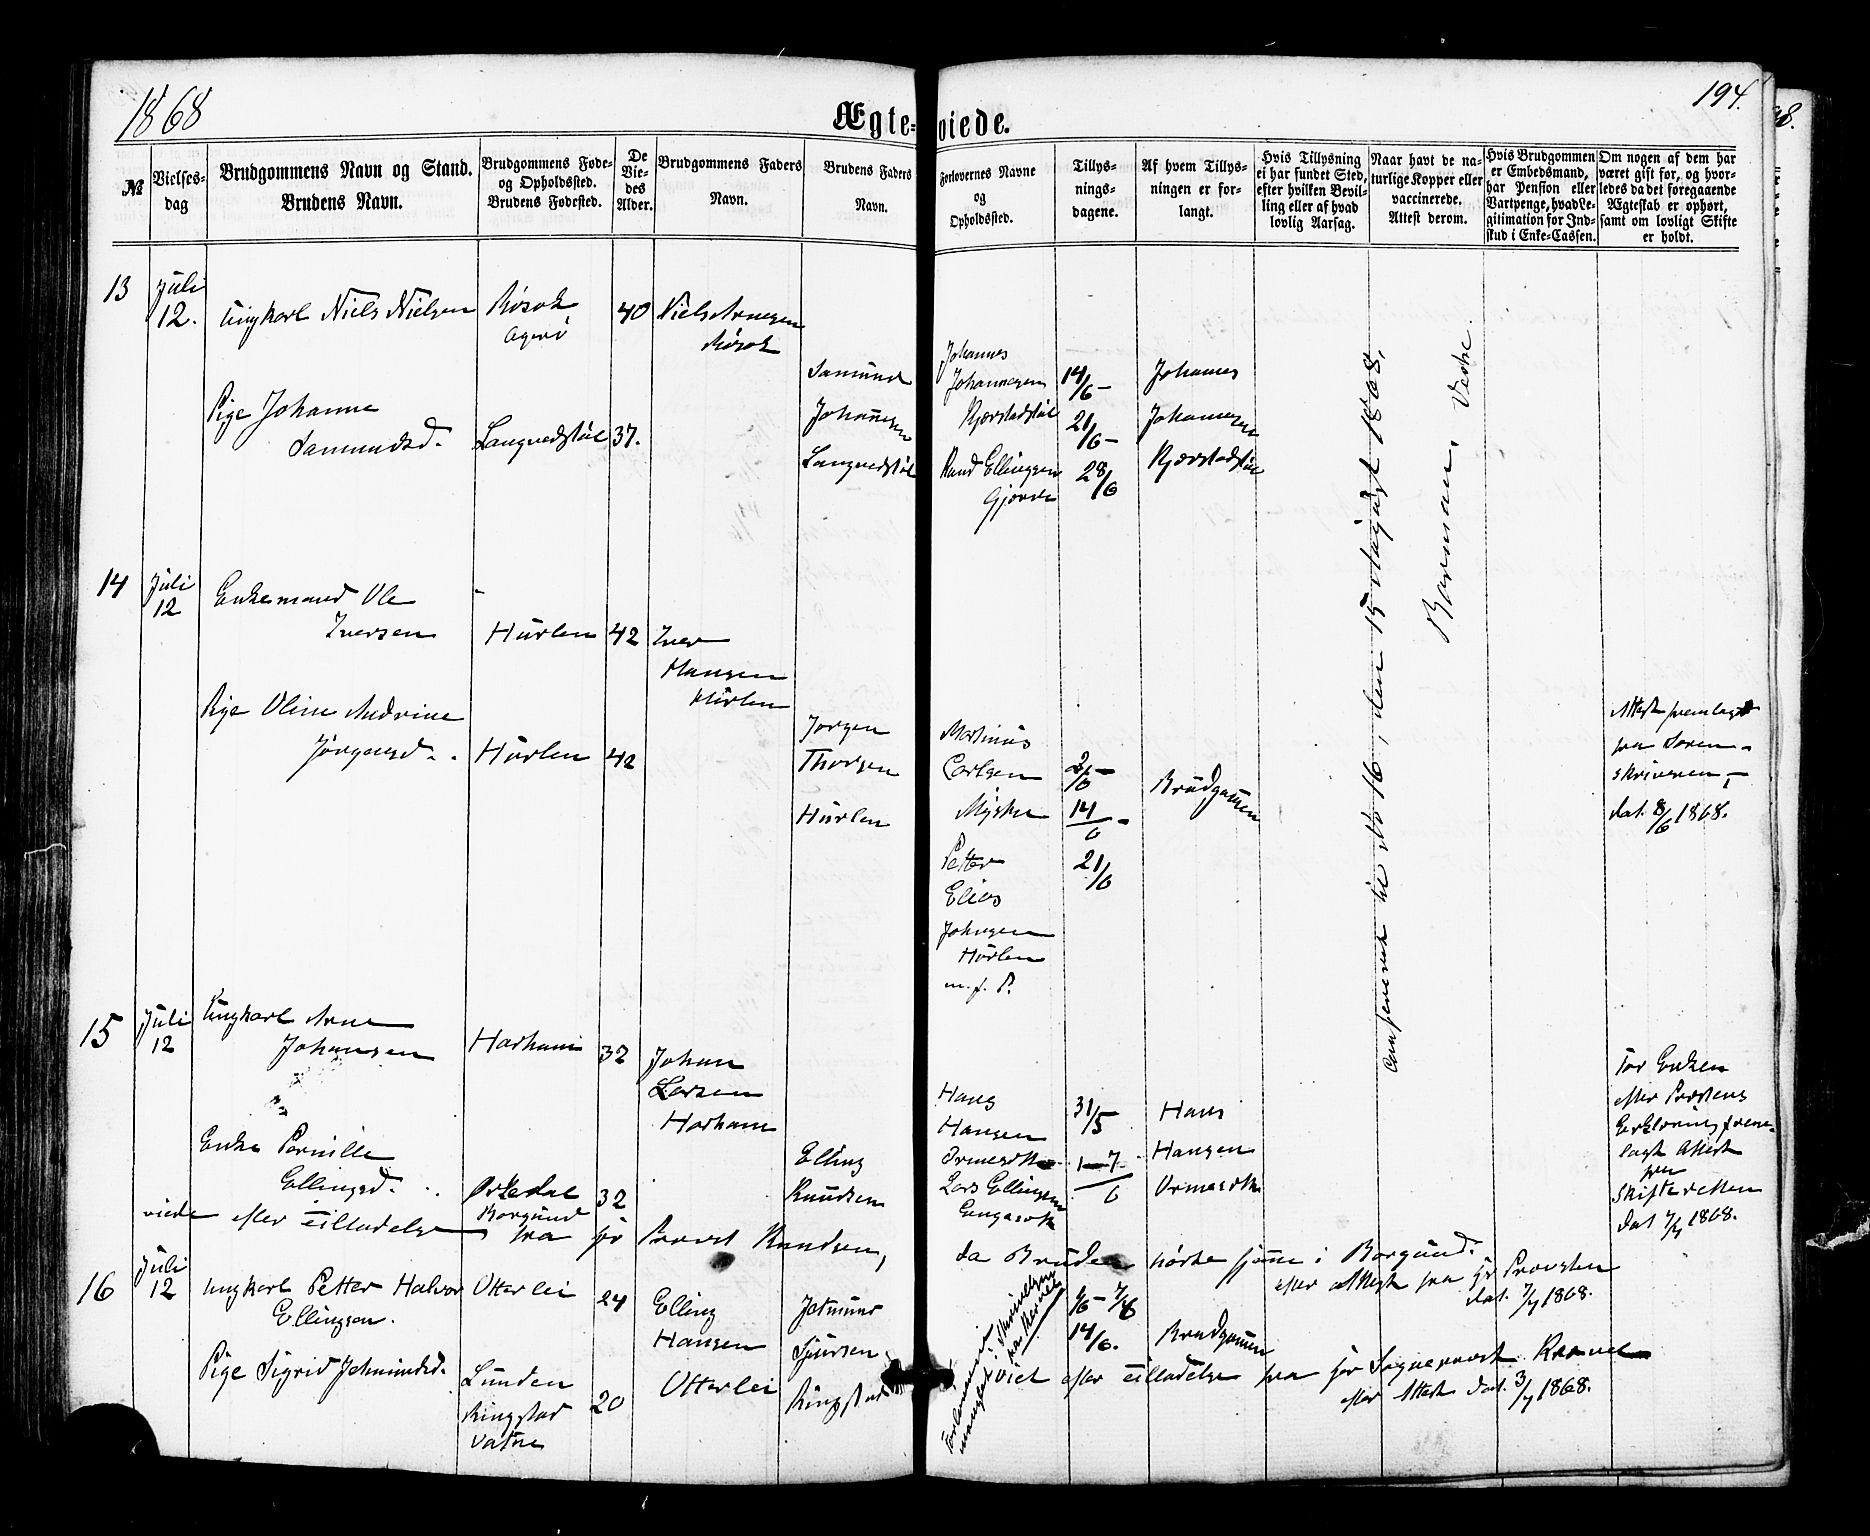 1868
194.
Ægte-viede.
№
Vielses-
dag
Brudgommens Navn og Stand.
Brudens Navn.
Brudgommens Føde-
og Opholdssted.
Brudens Fødested.
De
Vie-
des
Alder.
Brudgommens Faders
Navn.
Brudens Faders
Navn.
Forlovernes Navne
og
Opholdssted.
Tillys-
nings-
dagene.
Af hvem Tillys-
ningen er for-
langt.
Hvis Tillysning
ei har fundet Sted,
efter hvilken Bevil-
ling eller af hvad
lovlig Aarsag.
Naar havt de na-
turlige Kopper eller
vaccinerede.
Attest derom.
Hvis Brudgommen
er Embedsmand,
har Pension eller
Vartpenge, hvad Le-
gitimation for Ind-
skud i Enke-Cassen.
Om nogen af dem har
været gift før, og hvor-
ledes da det foregaaende
Ægteskab er ophørt,
samt om lovligt Skifte
er holdt.
13
Juli
12.
Ungkarl Niels Nielsen
Røsok
Agerø
40
Niels Arnesen
Røsok
Pige Johanne
Samundsd.
Langvedstøl
37.
Samund
Johannesen
Langvedstøl
Johannes
Johannesen
Kjærstadstøl
Knud Ellingsen
Gjørve
14/6 -
21/6 -
28/6
Johannes
Johannesen
Kjærstadstøl
14
Juli
12
Enkemand Ole
Iversen
Hurlen
42
Iver
Hansen
Hurlen
Pige Oline Andrine
Jørgensd.
Hurlen
42
Jørgen
Thorsen
Hurlen
Martinus
Carlsen
Petter
Elias
Johnsen
Hurlen
m. f. P.
14/6 -
21/6
Brudgommen
Attest fremlagt
fra Soren-
skriveren,
dat. 8/6 1868.
15
Juli
12
Ungkarl Arne
Johansen
Harham
32
Johan
Larsen
Harham
Enke Pernille
Ellingsd.
Borgund
32
Elling
Knudsen
Hans
Hansen
Lars Ellingsen
31/5
1-7/6
Hans
Hansen
For Enken
efter Provstens
Erklæring frem-
lagt Attest
fra
Skifteretten
dat 7/7 1868.
viede efter Tilladelse fra Hr Provst Knudsen,
da Bruden hørte hjem i Borgund.
efter Attest fra Hr Provsten
dat. 7/7 1868.
16
Juli
12
Ungkarl Petter Halvor
Ellingsen.
Otterlei
24
Elling
Hansen
Otterlei
Pige Sigrid Jetmundsd.
Lunden
Ringstad
Vatne
20
Jetmund
Sjursen
Ringstad
14/6.
Brudgommen
viet efter Tilladelse fra Hr Sognepræst
efter Attest dat. 3/7 1868.
Confereret til No 16, den 15 August 1868,